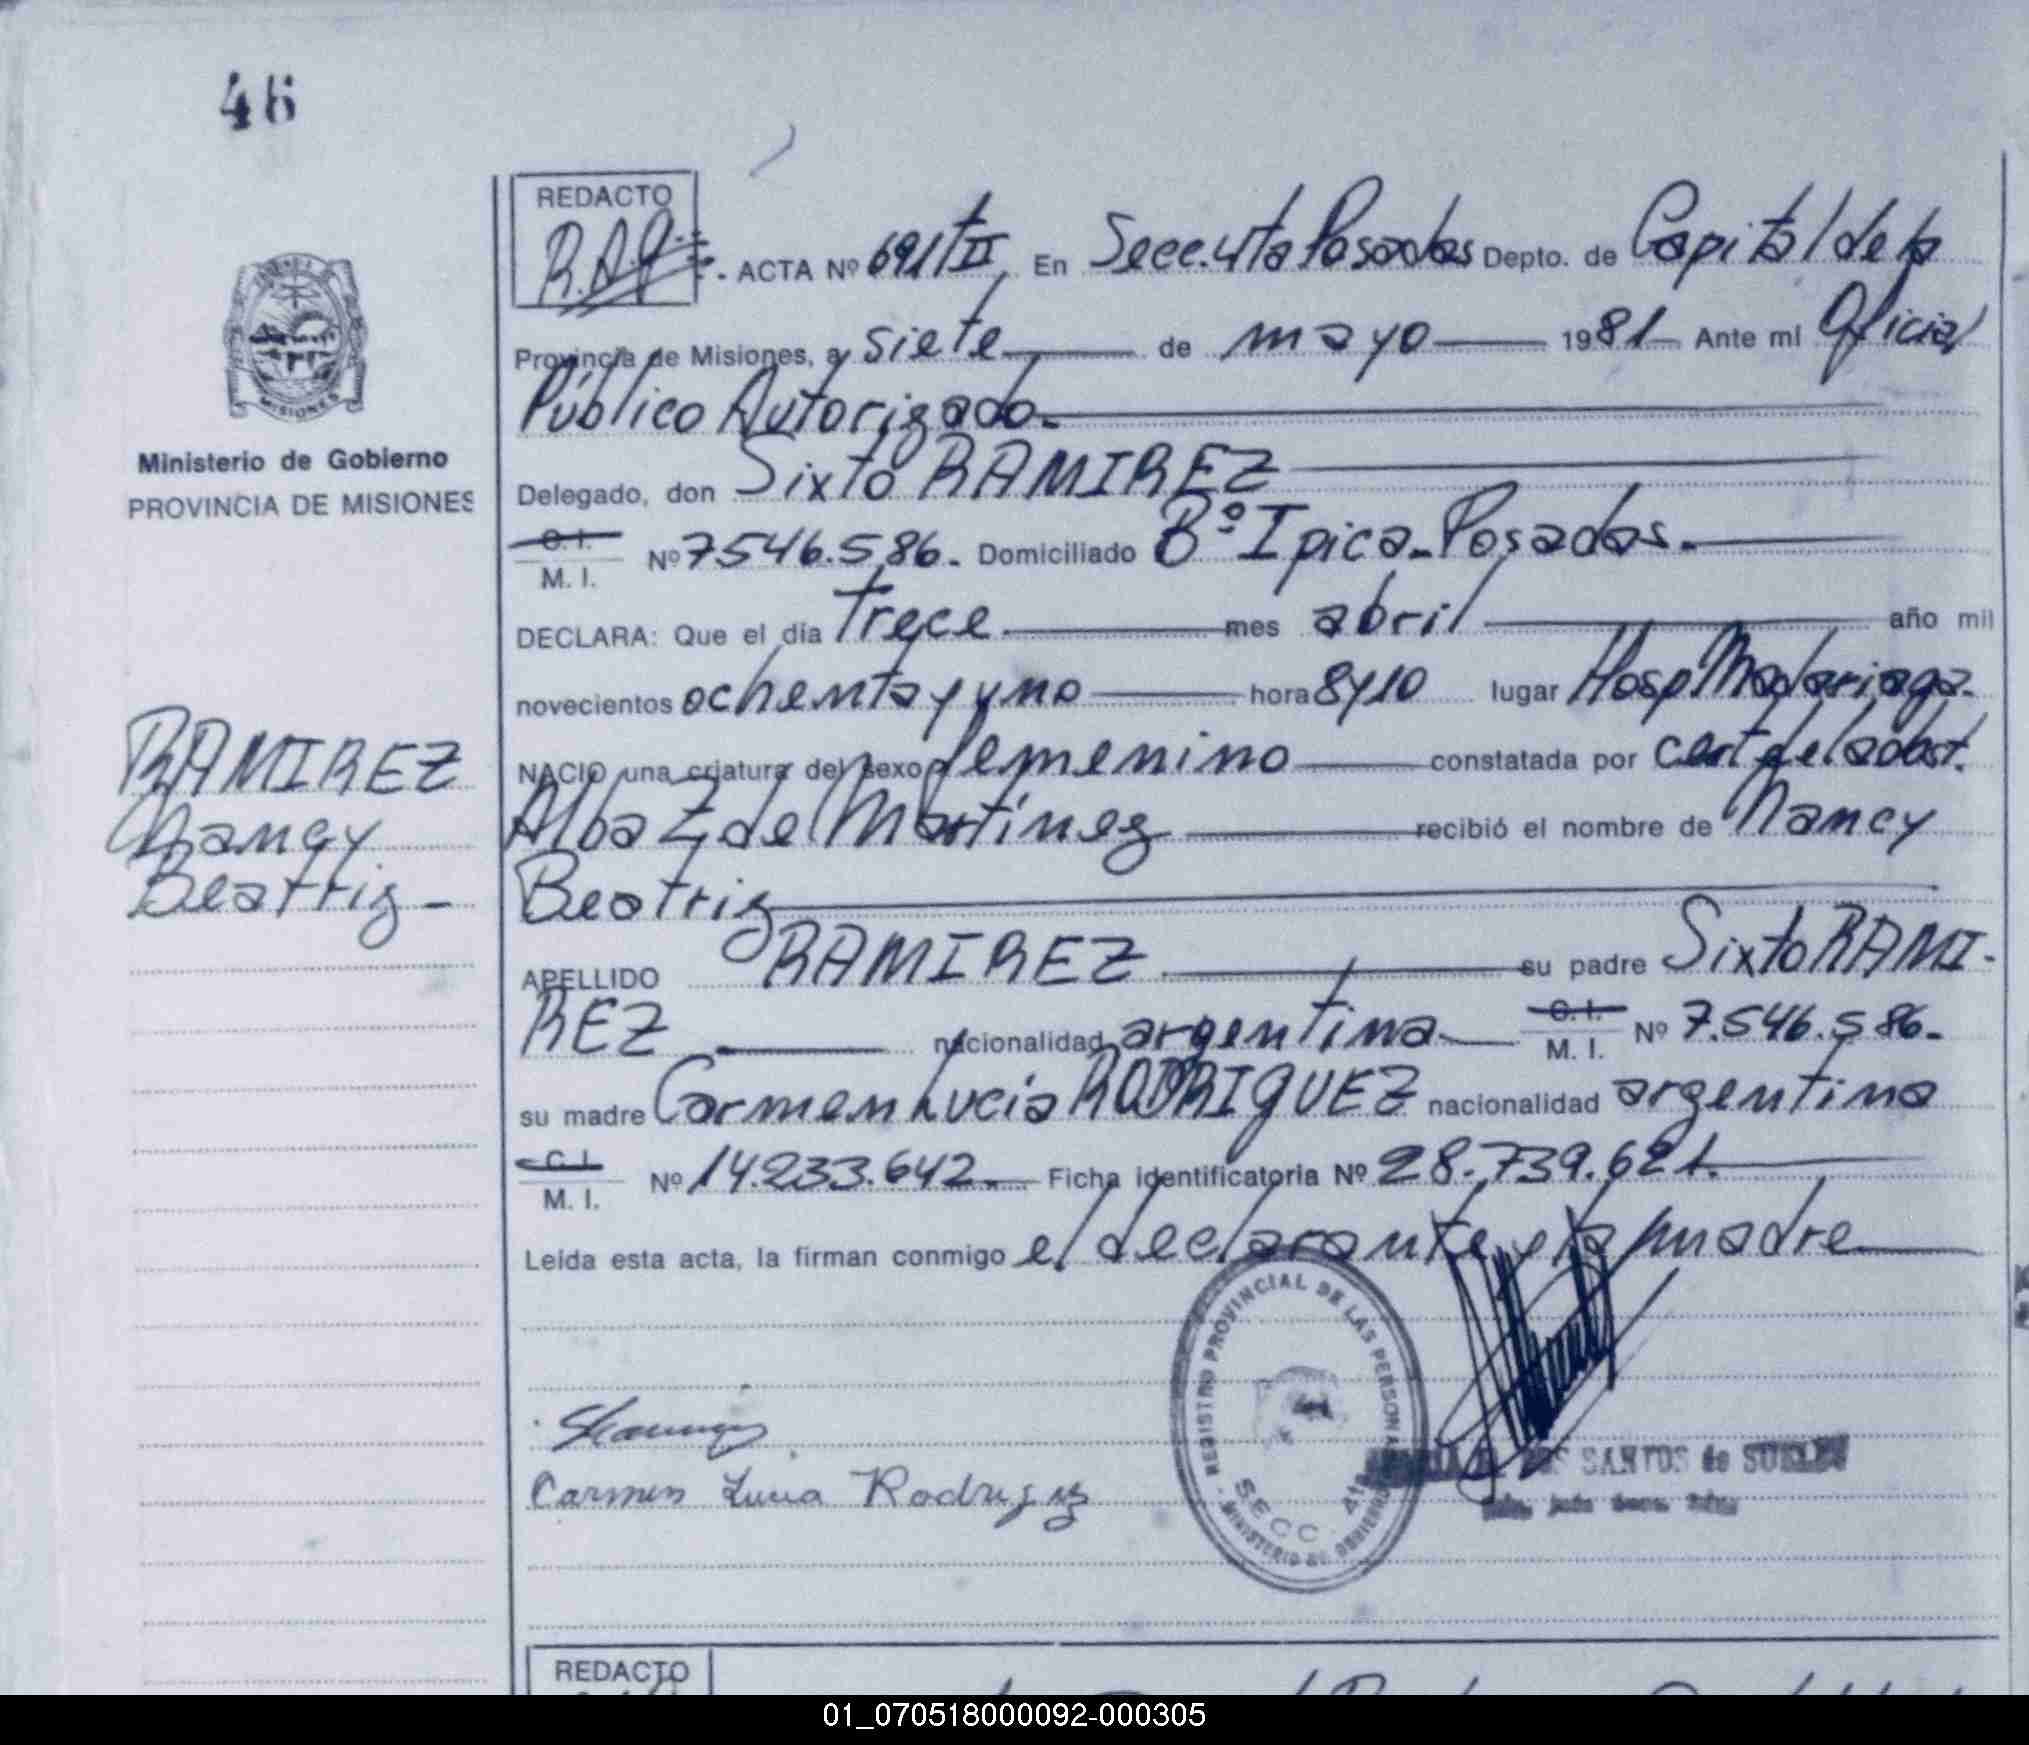 46
REDACTO
ACTA Nº 691 T II En Secc. 4ta Posadas Depto. de Capital de la
Provincia de Misiones, a siete de mayo 1981 Ante mi Oficial
Público Autorizado.
Delegado, don Sixto RAMIREZ
C. I.
M. I. Nº 7546.586. Domiciliado Bº Ipica - Posadas.
DECLARA: Que el día trece mes abril año mil
novecientos ochenta y uno hora 8y10 lugar Hosp Madariaga.
NACIO una criatura del sexo femenino constatada por cert de la obst.
Alba Z de Martínez recibió el nombre de Nancy
Beatriz
APELLIDO RAMIREZ su padre Sixto RAMI-
REZ nacionalidad argentina C. I.
M. I. Nº 7.546.586.
su madre Carmen Lucia RODRIGUEZ nacionalidad argentina
C. I.
M. I. Nº 14.233.642. Ficha identificatoria Nº 28.739.621.
Leída esta acta, la firman conmigo el declarante y la madre
Carmen Lucia Rodriguez
REGISTRO PROVINCIAL DE LAS PERSONAS
SECC. 4ta
MINISTERIO DE GOBIERNO
SANTOS de
MISIONES
Ministerio de Gobierno
PROVINCIA DE MISIONES
RAMIREZ
Nancy
Beatriz -
REDACTO
01_070518000092-000305